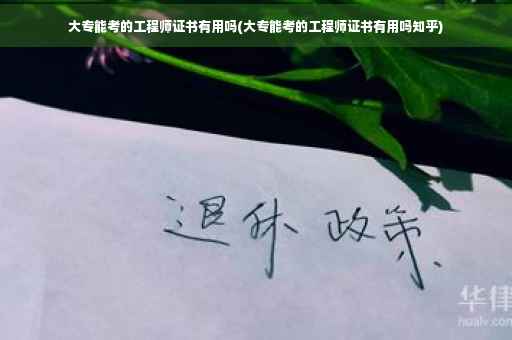 大专能考的工程师证书有用吗(大专能考的工程师证书有用吗知乎)
退休 政策
华律
hualv.com